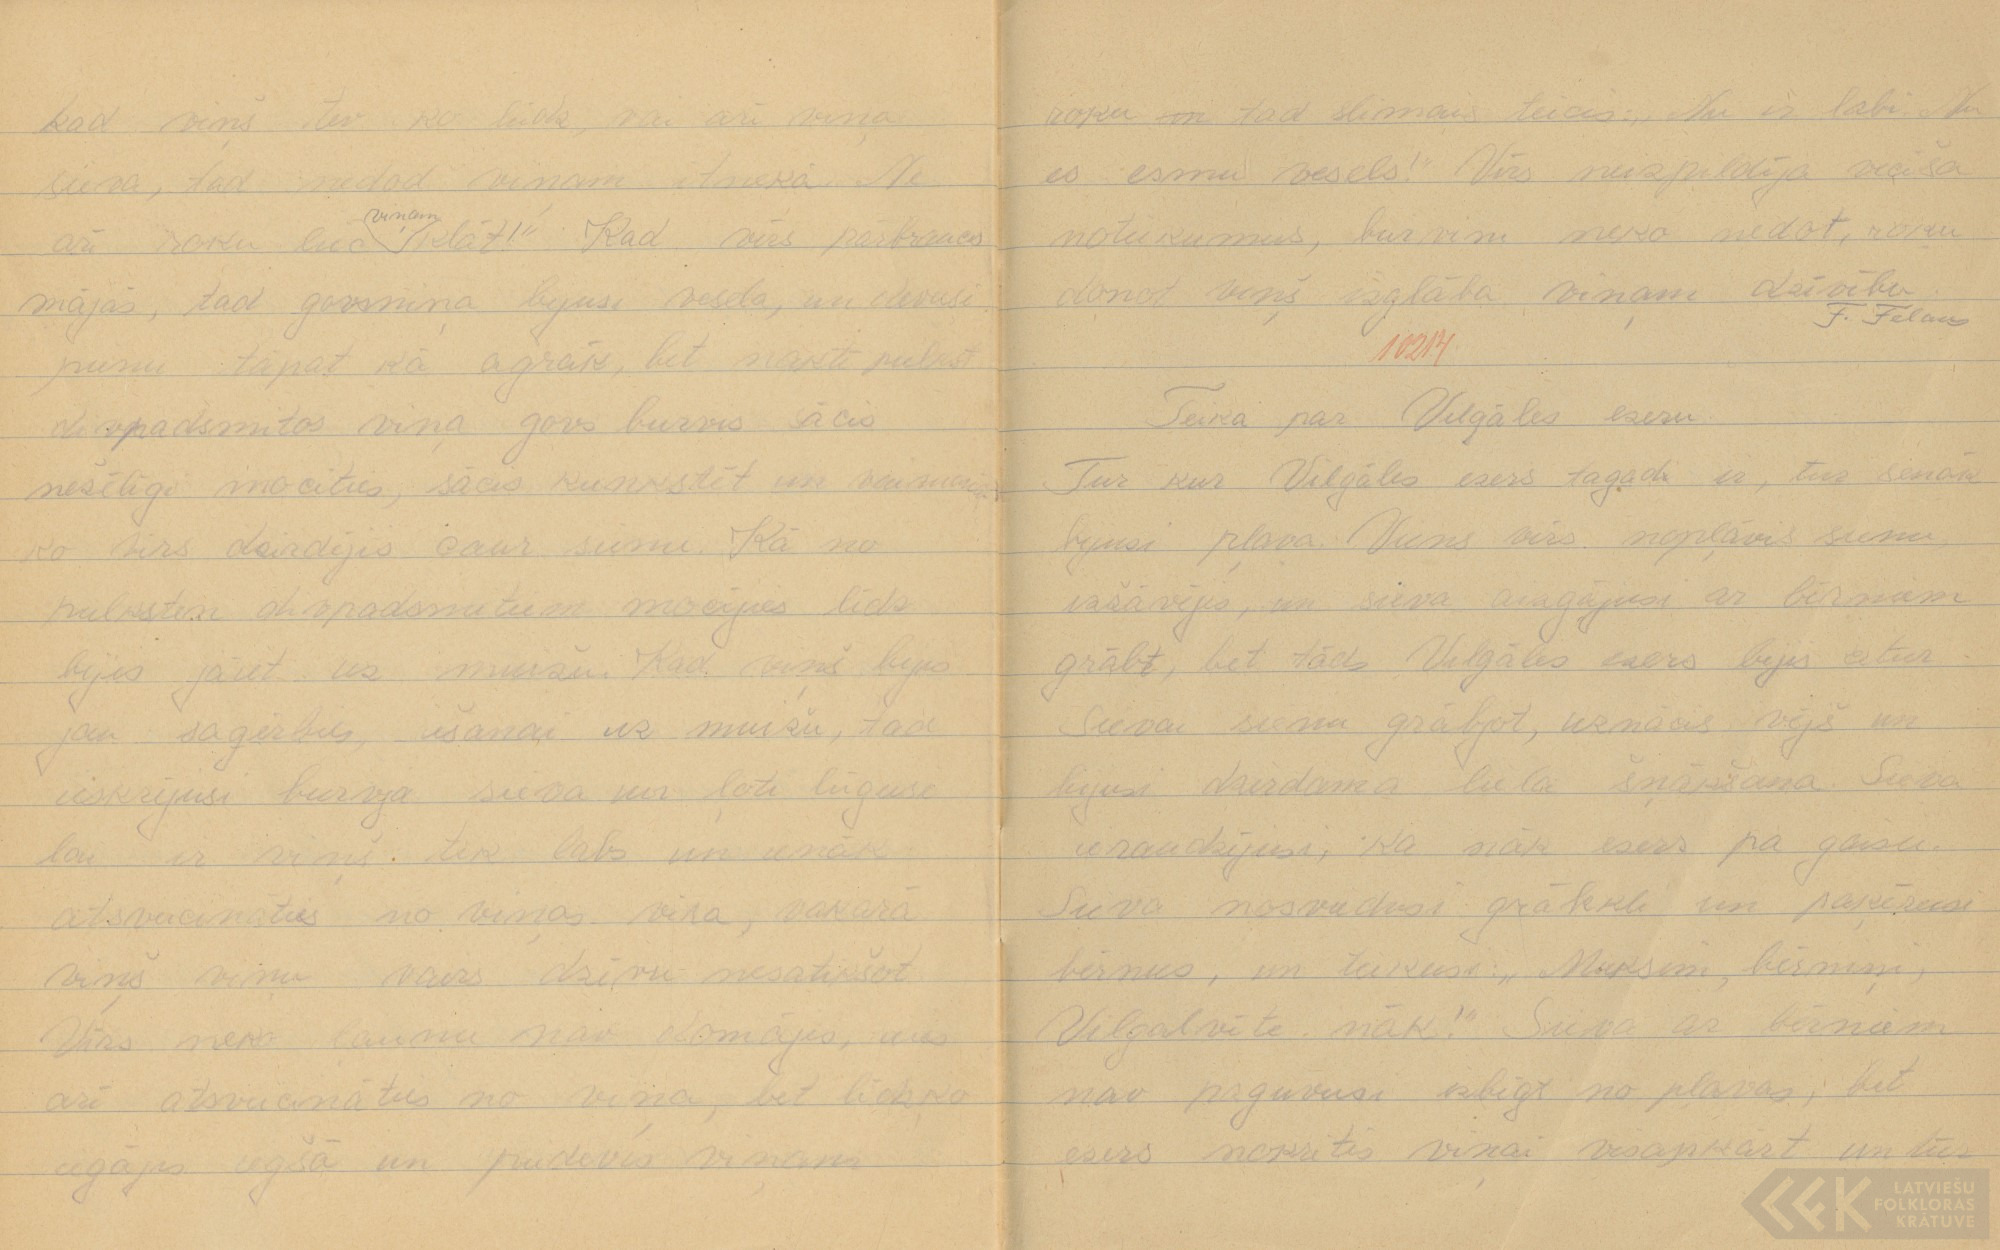 kad viņš tev ko lūdz, vai arī viņa
sieva, tad nedod viņam itnekā. Ne
arī roku liec viņam klāt!" Kad vīrs pārbraucis
mājās, tad govsniņa bijusi vesela, un devusi
pienu tāpat kā agrāk, bet naktī pulkst.
divpadsmitos viņa govs burvis sācis
nežēlīgi mocīties, sācis kunkstēt un
ko vīrs dzirdējis caur sienu. Kā no
pulksten divpadsmitiem mocījies līdz
bijis jāiet uz muižu. Kad viņš bijis
jau saģērbies, iešanai uz muižu, tad
ieskrējusi burvja sieva un ļoti lūgusi
lai ir viņš tik labs un ienāk
atsveicināties no viņas vīra, vakarā
viņš viņu vairs dzīvu nesatikšot
Vīrs neko ļaunu nav domājis, ies
arī atsveicināties no viņa, bet līdzko
iegājis iegšā un piedevis viņam
roku tad slimais teicis: „Nu ir labi. Nu
es esmu vesels!" Vīrs neizpildīja veciša
noteikumus, burvim neko nedot, roku
donot viņš izglāba viņam dzīvību.
F. Felaus
10214
Teika par Vilgāles ezeru.
Tur kur Vilgāles ezers tagad ir, tur senāk
bijusi pļava. Viens vīrs nopļāvis sienu,
izžāvējis, un sieva aizgājusi ar bērniem
grābt, bet tāds Vilgāles ezers bijis citur.
Sievai sienu grābjot, uznācis vējš un
bijusi dzirdama liela šņākšana. Sieva
ieraudzījusi, ka nāk ezers pa gaisu.
Sieva nosviedusi grābekli un paķērusi
bērnus, un teikusi: „Muksim, bērniņi,
Vilgalvīte nāk!" Sieva ar bērniem
nav paguvusi izbēgt no pļavas, bet
ezers nokritis viņai visapkārt un tur
LATVIEŠU
FOLKLORAS
KRĀTUVE